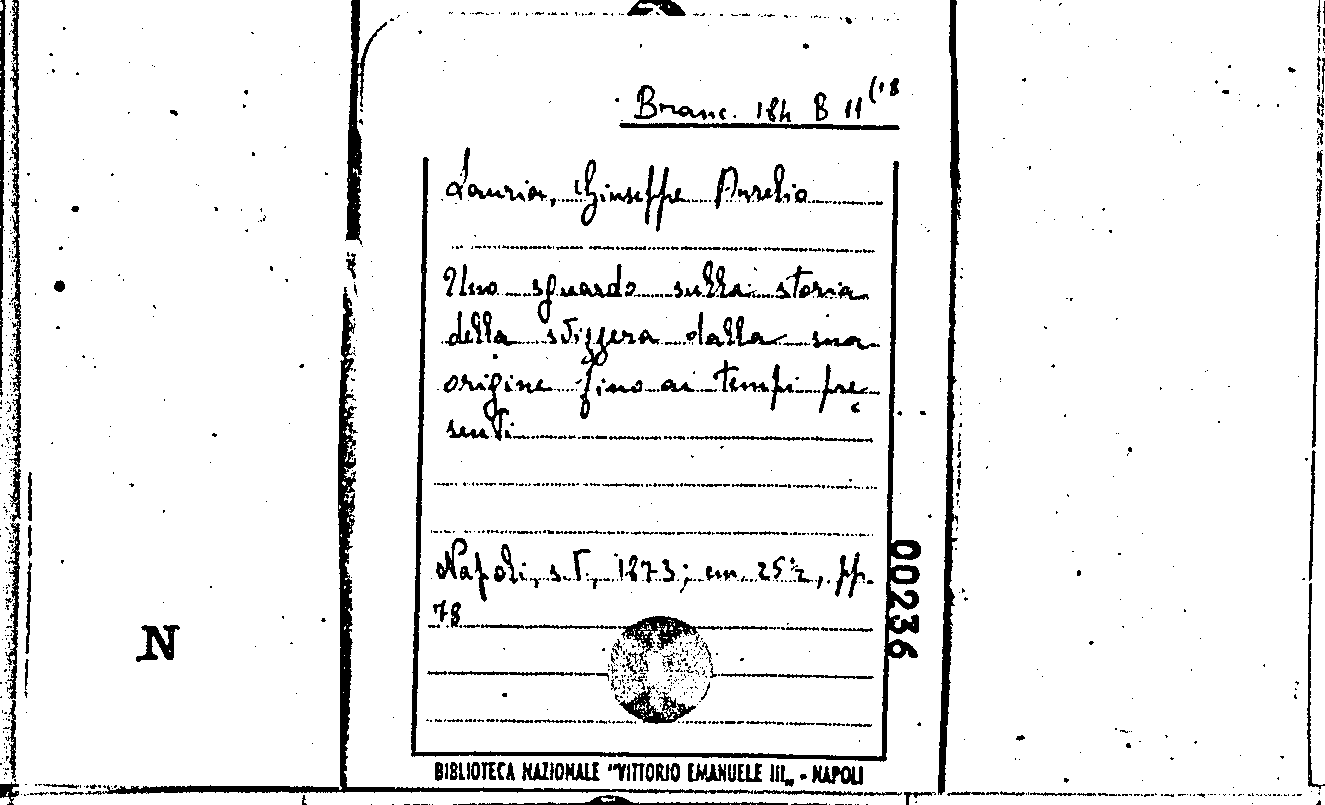 Branc. 18h B 11 (18
Lauria, Giuseppe Aurelio
Uno sguardo sulla storia
della svizzera dalla sua
origine fino ai tempi pre
senti
Napoli, s.T., 1873; cm 25½, pp.
78
00236
N
BIBLIOTECA NAZIONALE "VITTORIO EMANUELE III„ - NAPOLI